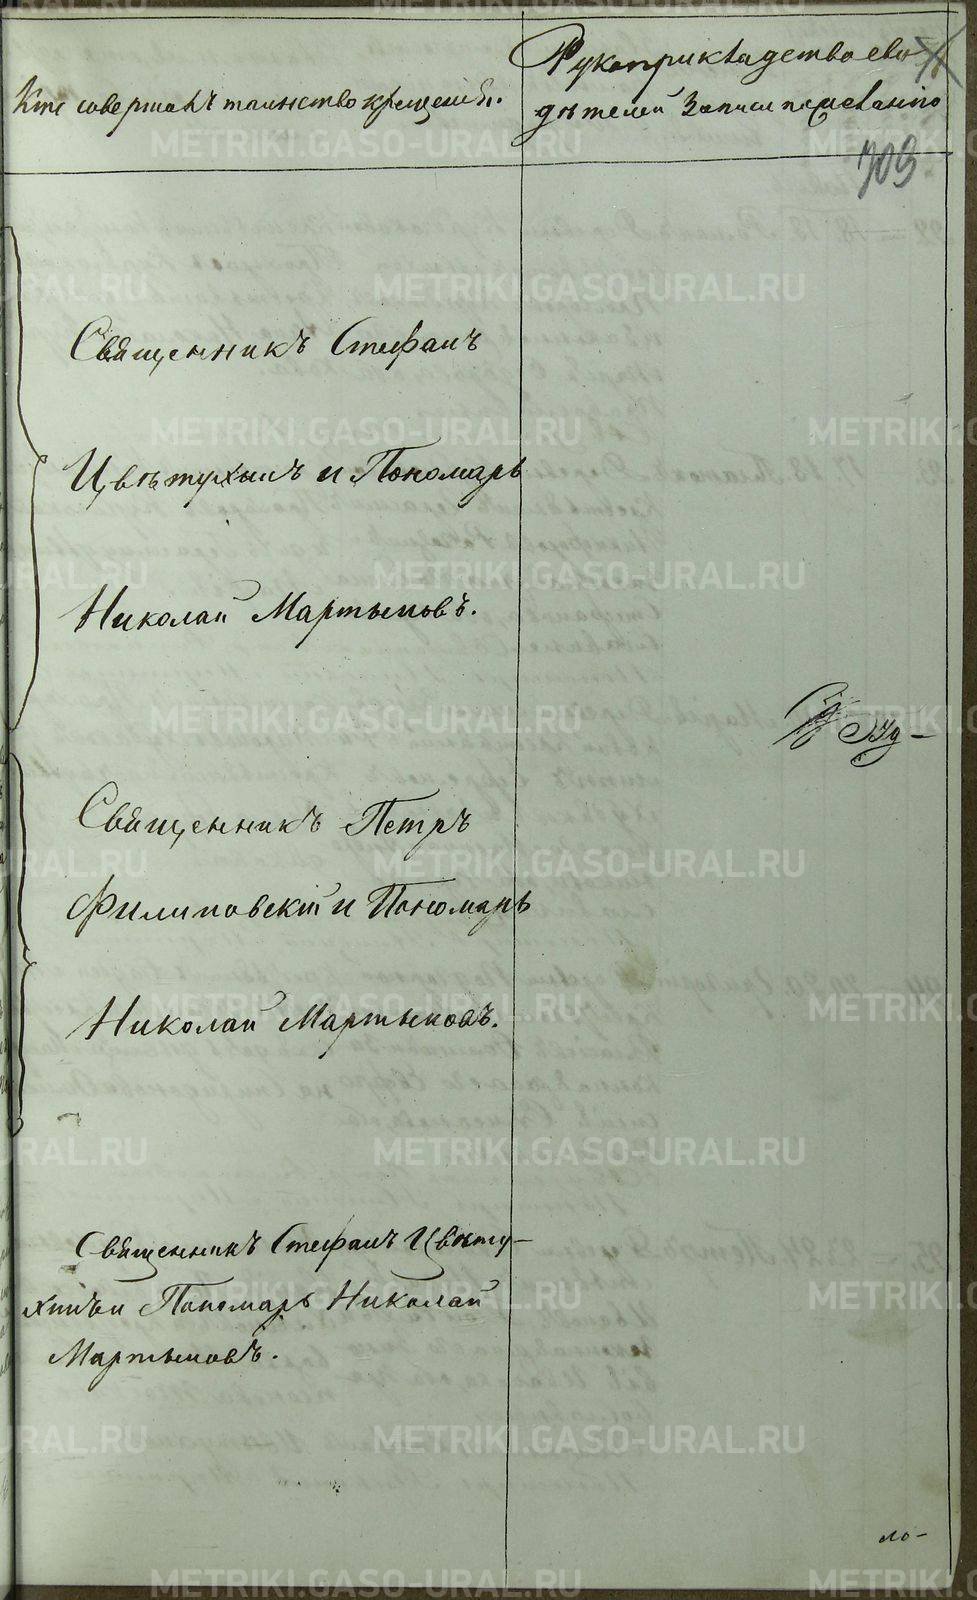 Кто совершалъ таинство крещенія.
Рукоприкладство сви
дѣтелей записи по желанію
709
Священникъ Стефанъ
Цвѣтухинъ и Пономарь
Николай Мартыновъ.
Священникъ Петръ
Филиповскій и Пономарь
Николай Мартыновъ.
Священникъ Стефанъ Цвѣту-
хинъ и Пономарь Николай
Мартыновъ.
ло-
METRIKI.GASO-URAL.RU